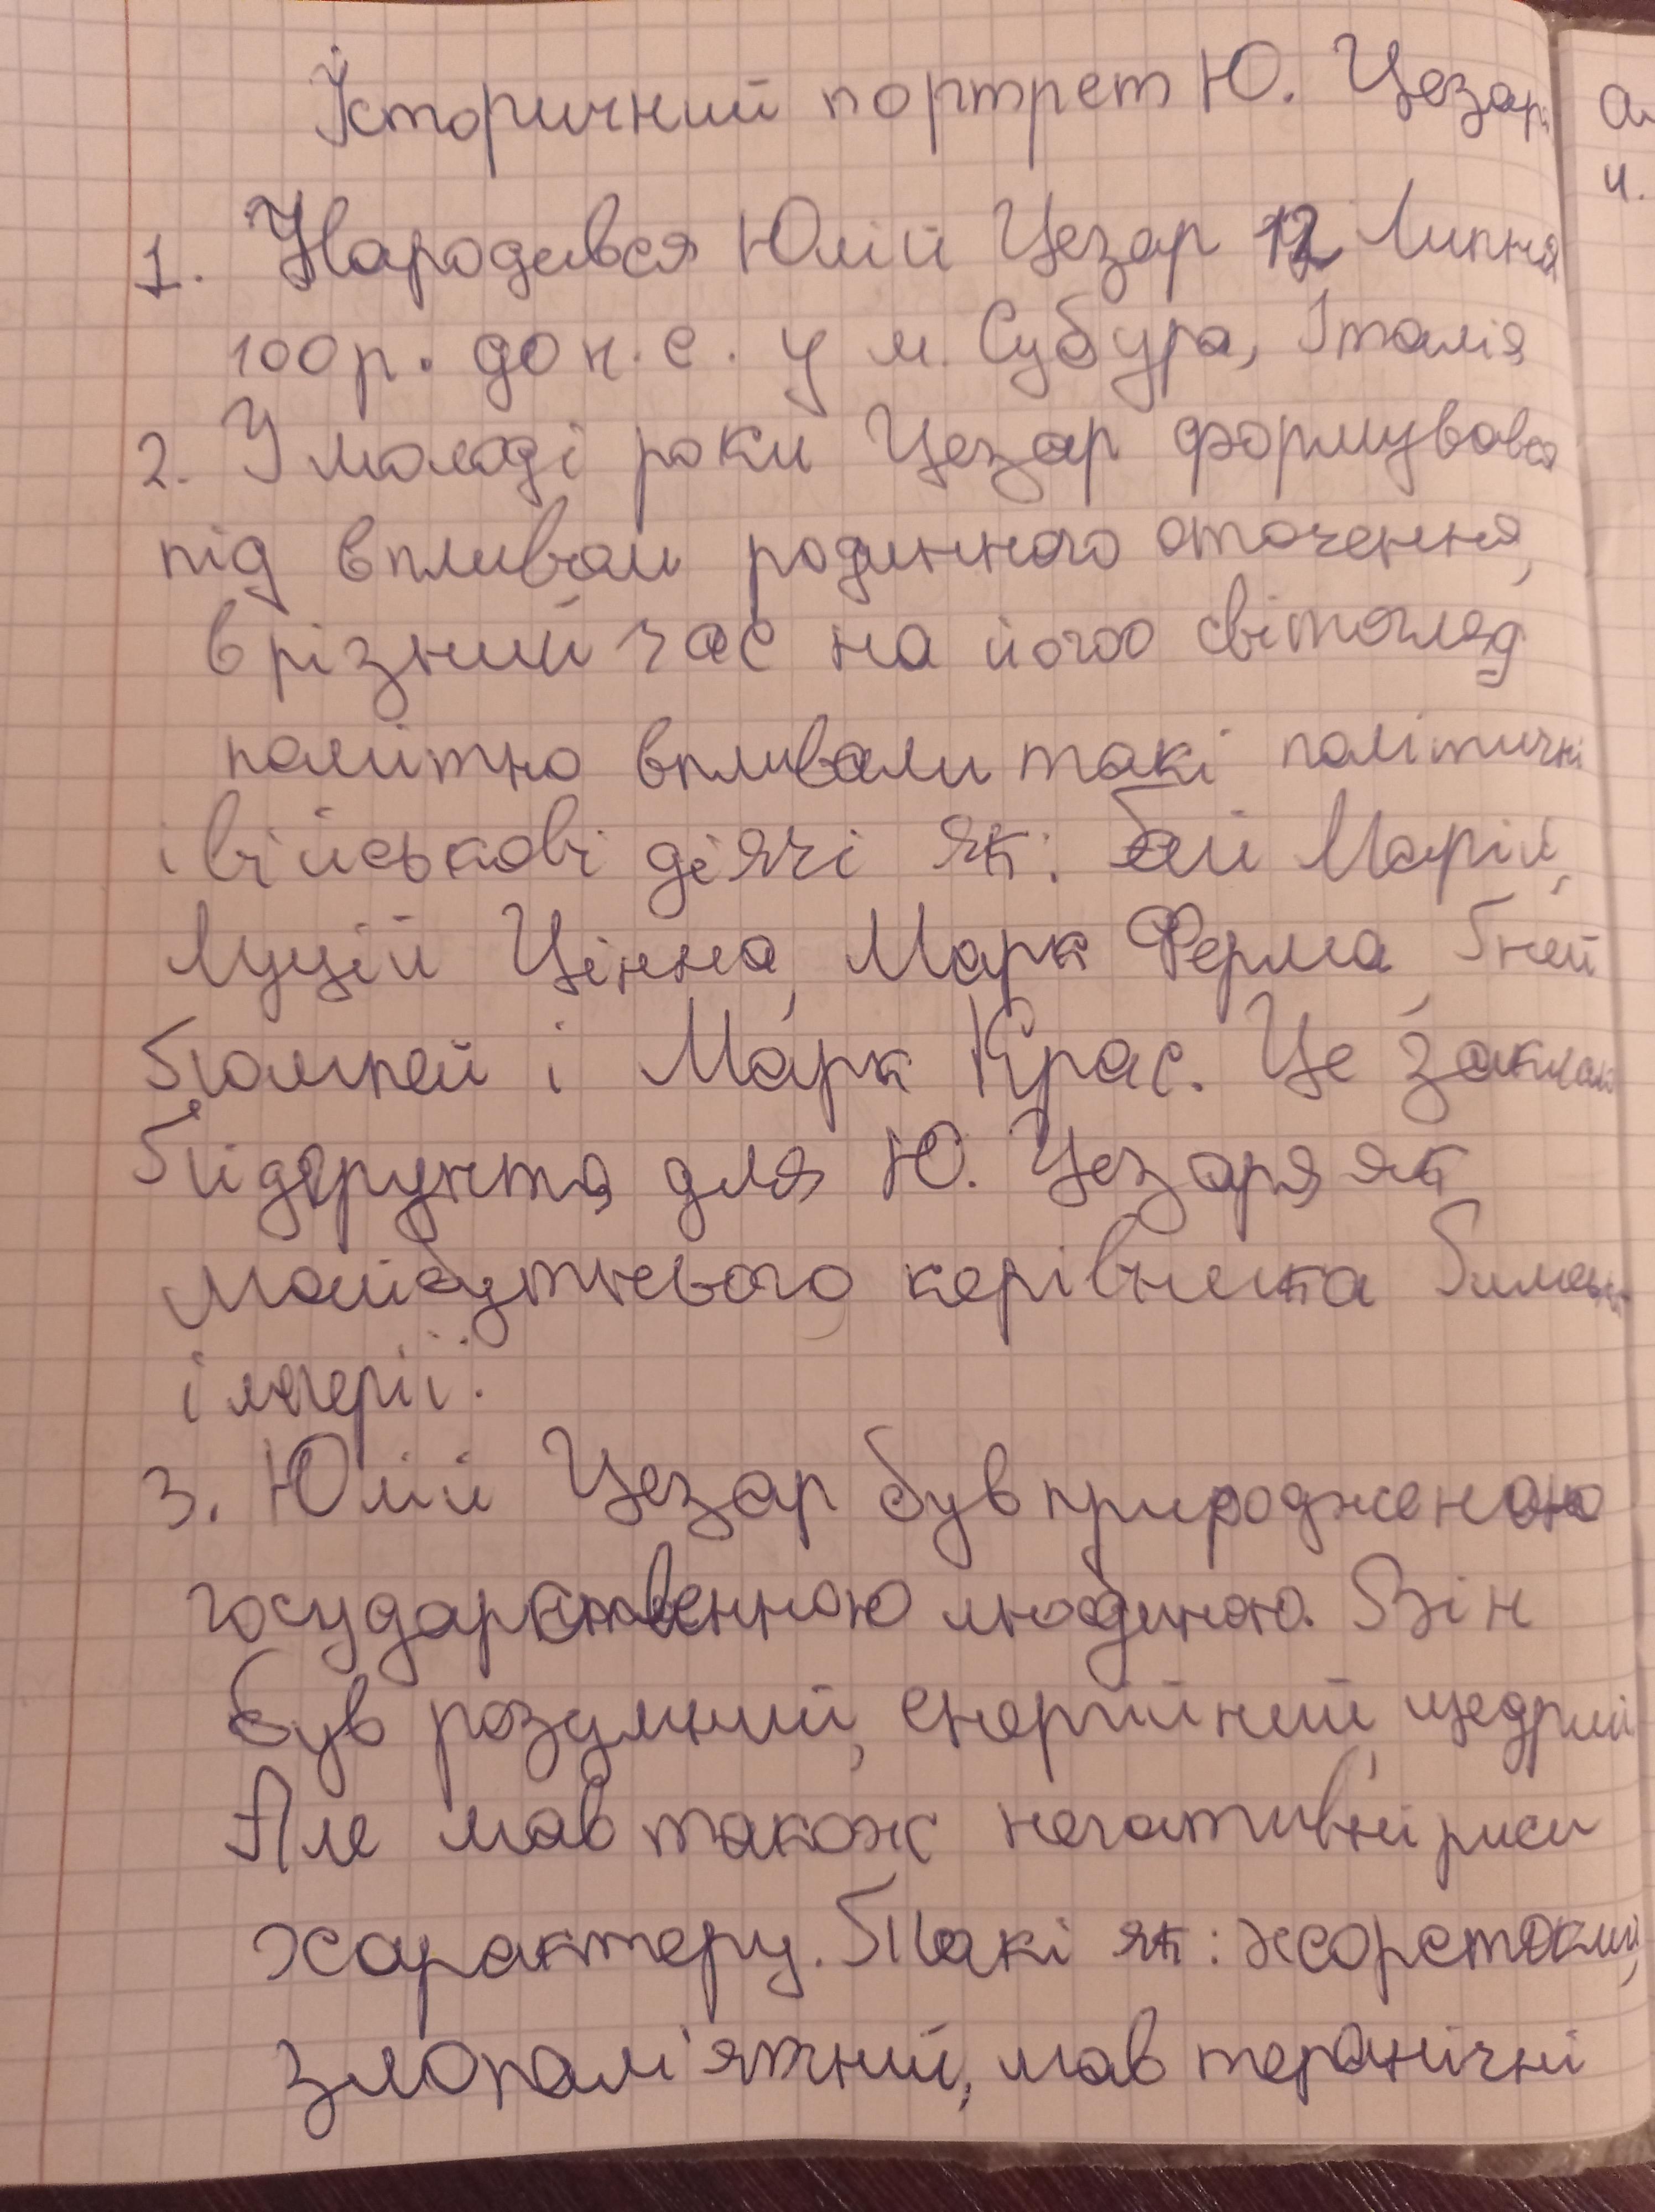 Історичний портрет Ю. Цезаря
1. Народився Юлій Цезар 12 Липня
100р. до н.е. у м. Субура, Італія
2. У молоді роки Цезар формувався
під впливом родинного оточення,
в різний час на його світогляд
помітно впливали такі політичні
і військові діячі як: Гай Марій,
Луцій Цінна, Марк Ферма, Гней
Помпей і Марк Крас. Це заклало
Підґрунтя для Ю. Цезаря як
майбутнього керівника Римської
імперії.
3. Юлій Цезар був природженою
государственною людиною. Він
був розумний, енергійний, щедрий
Але мав також негативні риси
характеру. Такі як: жорстокий,
злопам'ятний, мав тиранічні